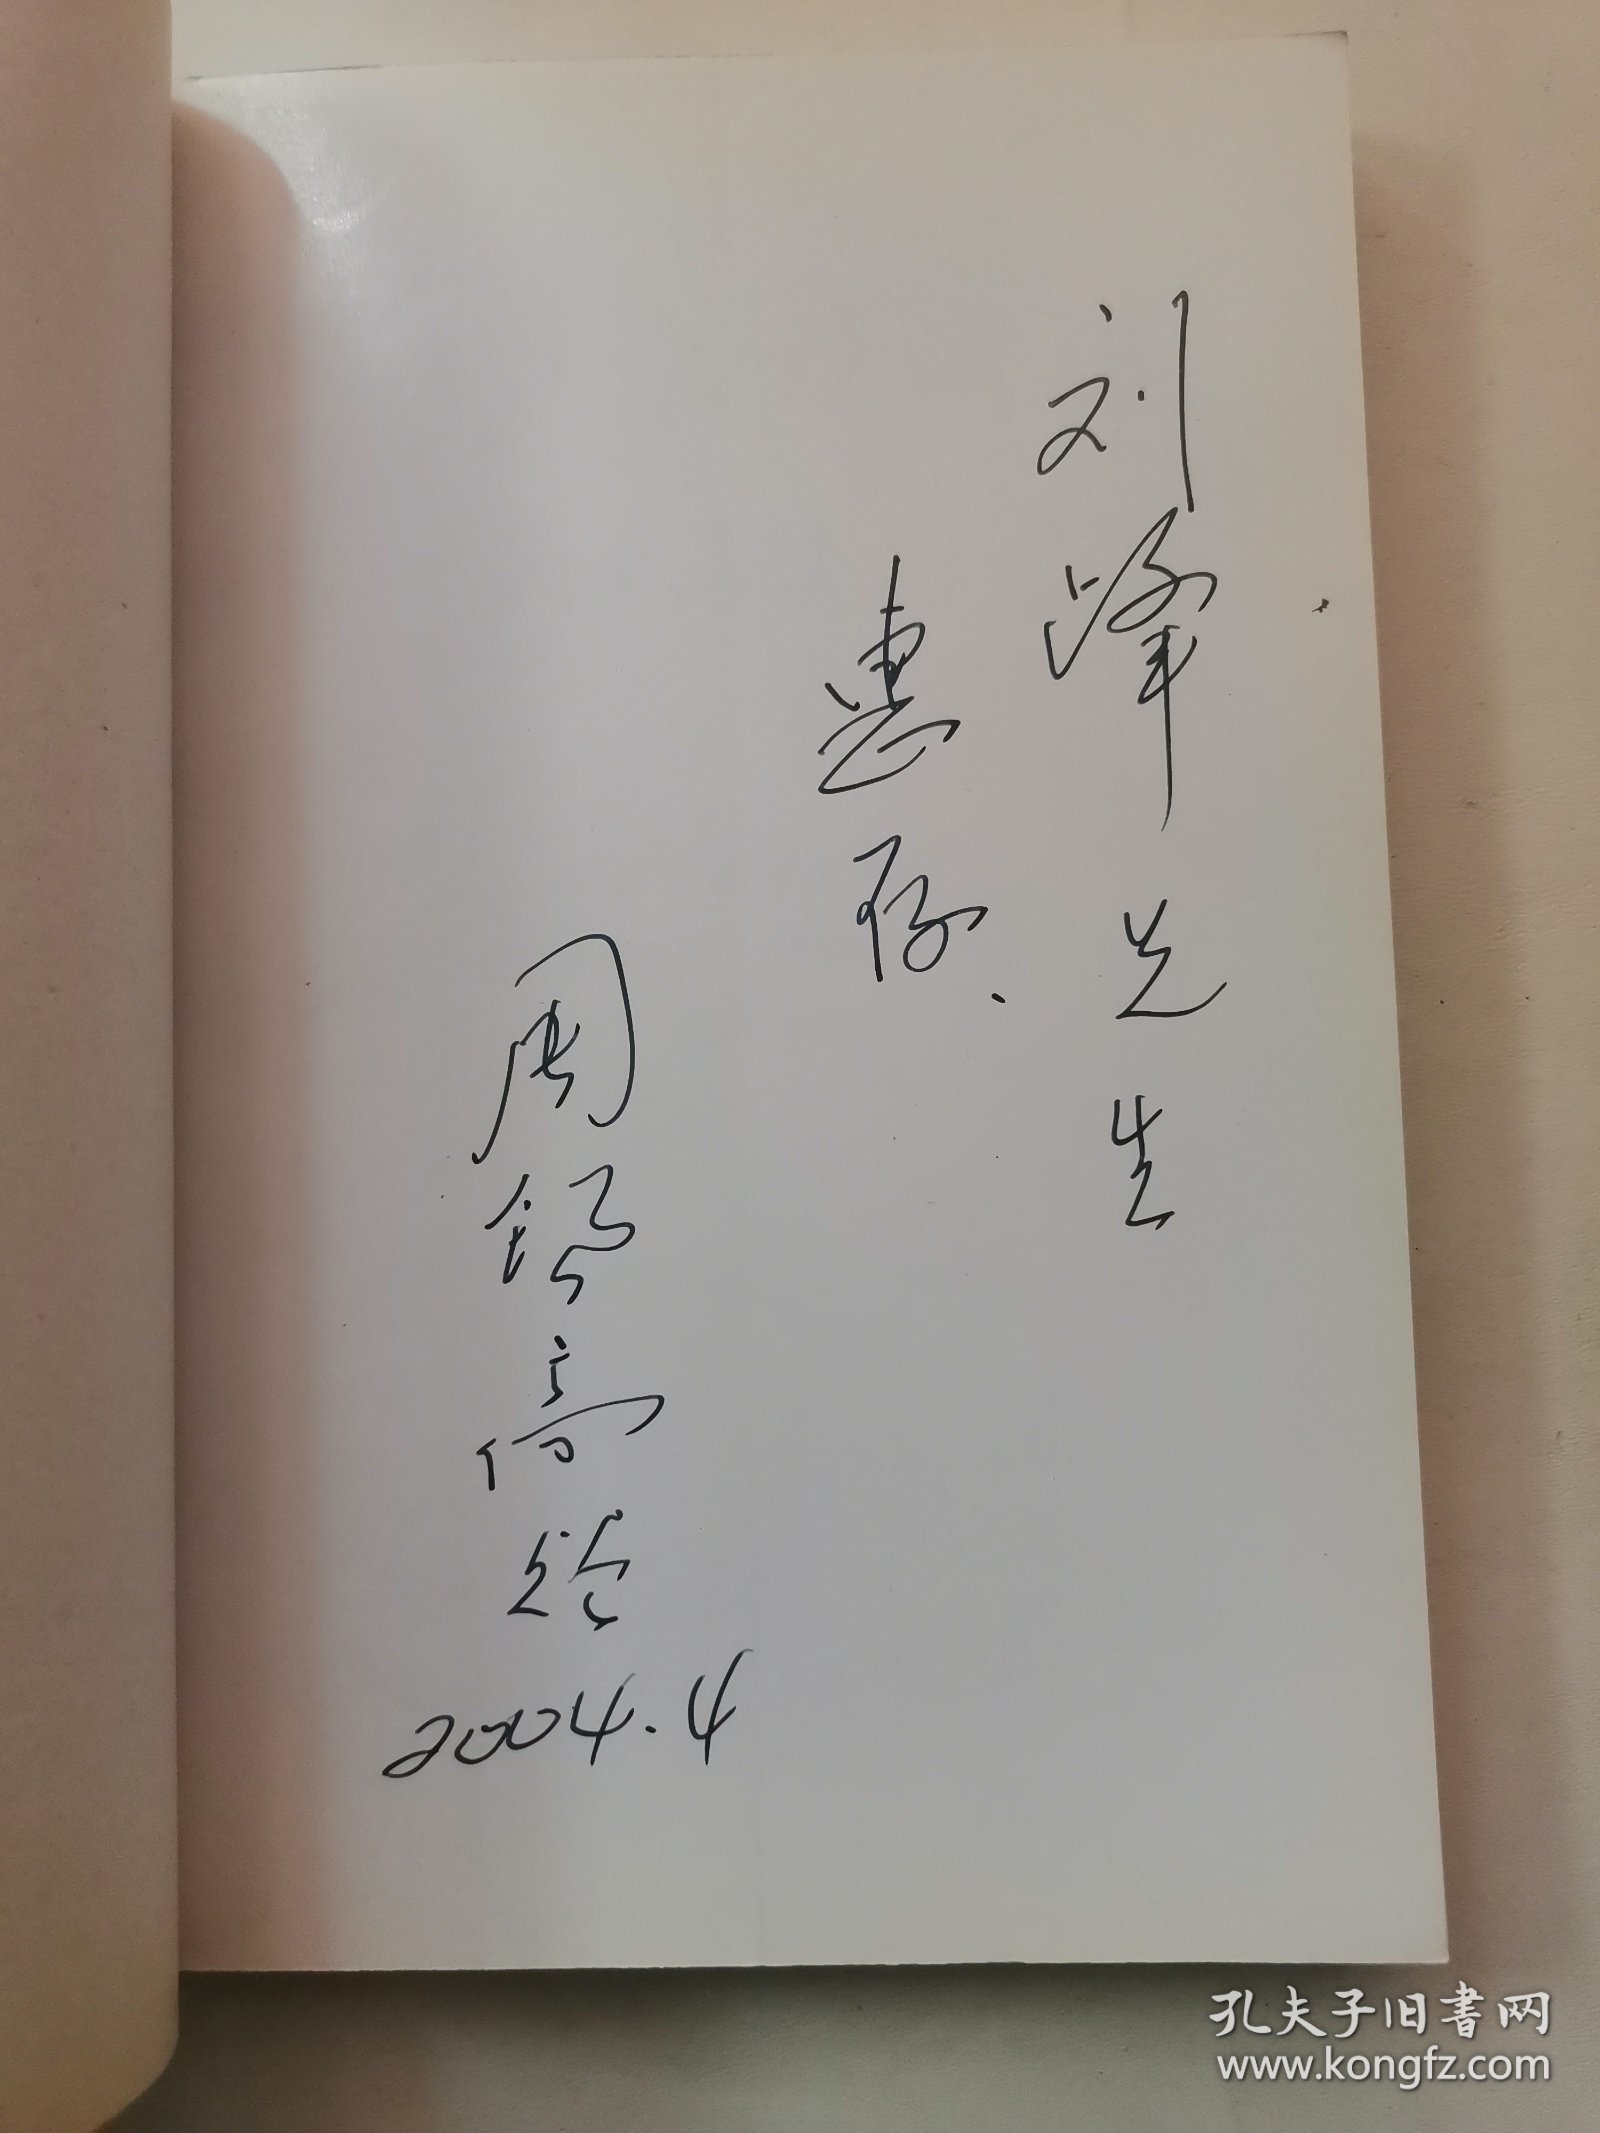 刘峰先生
惠存.
周锡高
2004.4
孔夫子旧书网
www.kongfz.com